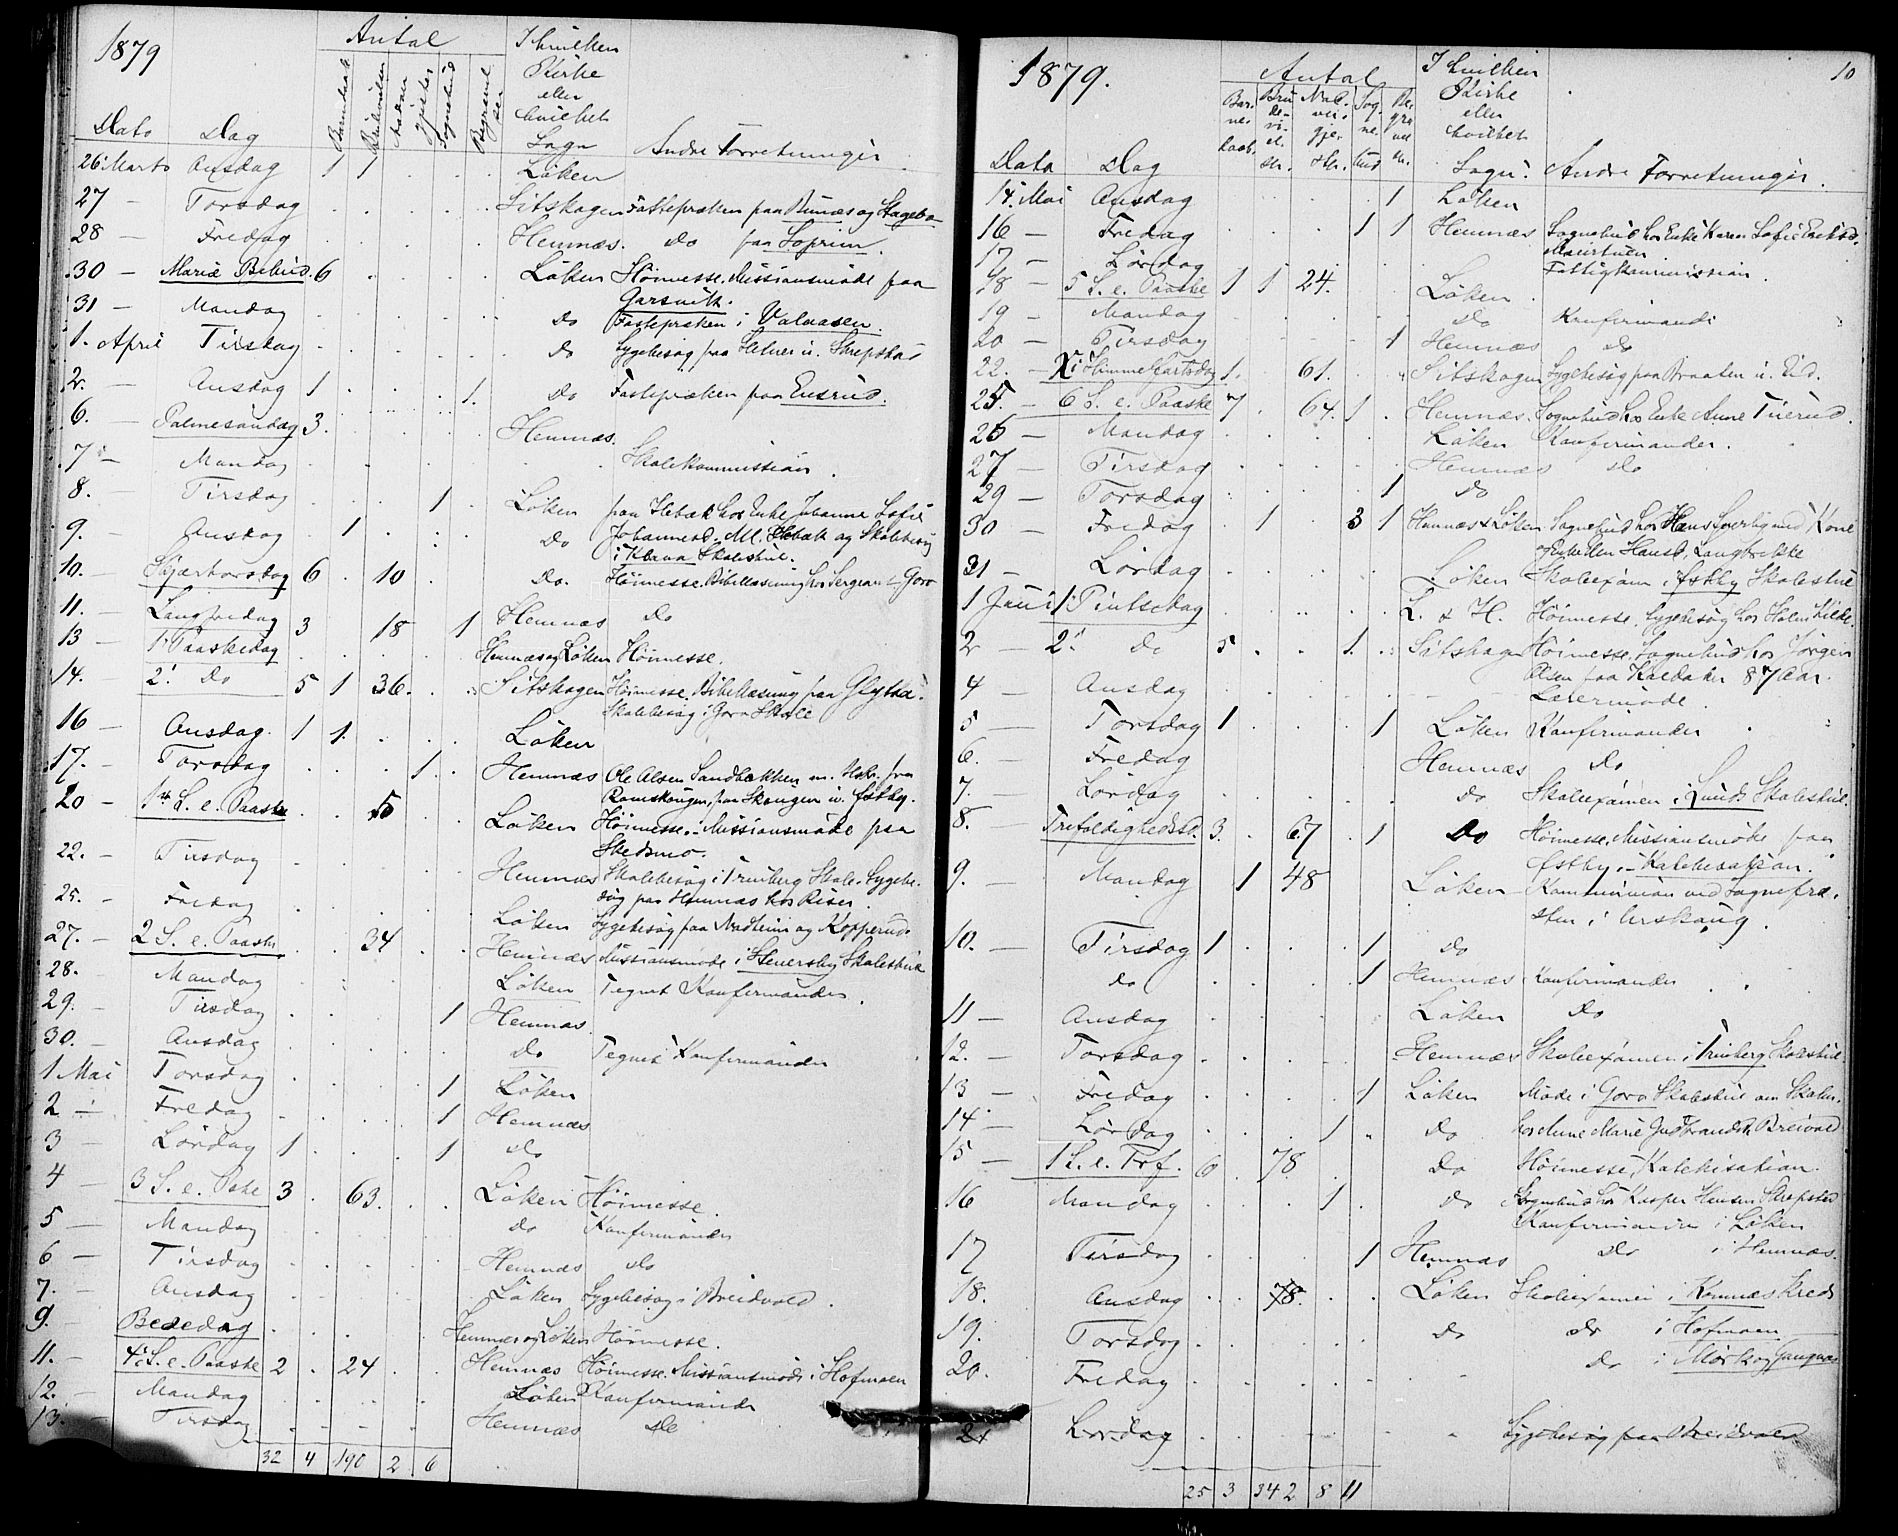 1879
Antal
I hvilken
Kirke
eller
hvilket
Sogn
Dato Dag Barnedaab Brudevielser Nadvergjester Sognebud Begravelser Andre Forretninger
26 Marts Onsdag 1 1 Løken
27 - Torsdag Sitskogen Fastepræken paa Bunæs og
28 - Fredag Hemnæs. Do paa Soprim.
30 - Mariæ Bebud. 6 Løken Høimesse. Missionsmøde paa
Garsvik.
31 - Mandag Do Fastepræken i Valaasen.
1. April Tirsdag Do Sygebesøg paa u. Skrepstad
2. - Onsdag 1 1. Do Fastepræken paa Ensrud.
6. - Palmesøndag 3. Hemnæs.
7 - Mandag Skolekommission.
8. - Tirsdag 1 Løken paa Hebæk hos Enke Johanne Sofie
9. - Onsdag 1 Do Johannesd. M. Hebæk og Skolebesøg
i Skolestue.
10. - Skjærtorsdag 6 10 Do. Høimesse. Bibellæsning hos Sergeant Goro
11. - Langfredag 3 18 1 Hemnæs Do
13 - 1 Paaskedag Hemnæs og Løken Høimesse.
14. - 2. Do 5 1 36. Sitskogen Høimesse. Bibellæsning paa
Skolebesøg i Goro Skole
16 - Onsdag. 1 1. Løken
17. - Torsdag 1. Hemnæs Ole Olsen Sandbækken m. Hstr. fra
Romskougen, paa Skougen u. Østby.
20 - 1ste S. e. Paaske 50 Løken Høimesse. Missionsmøde paa
Skedsmo.
22. - Tirsdag Hemnæs Skolebesøg i Trinberg Skole. Sygebe-
25. - Fredag søg paa Hemnæs hos
Løken Sygebesøg paa og Kopperud.
27. - 2 S. e. Paaske 34 Hemnæs Missionsmøde i Henersby Skolestue
28. - Mandag Løken Tegnet Konfirmander.
29. - Tirsdag 1 Hemnæs.
30. - Onsdag Do Tegnet Konfirmander
1 Mai Torsdag 1 Løken
2 - Fredag 1 Hemnæs
3 - Lørdag 1 1 Do
4 - 3 S. e. Paske 3 63. Løken Høimesse.
5 - Mandag Do Konfirmander
6 - Tirsdag Hemnæs Do
7. - Onsdag Løken Sygebesøg i Breidvold.
9. - Bededag Hemnæs og Løken Høimesse.
11. - 4. S. e. Paaske 2 24 Hemnæs Høimesse. Missionsmøde i Hofmoen
12. - Mandag Løken Konfirmander
13. - Tirsdag Hemnæs Do
32 4 190 2 6
1879. 10
Antal
I hvilken
Kirke
eller
hvilket
Sogn.
Dato Dag Barnedaab. Brudevielser. Nadvergjester. Sognebud Begravelser. Andre Forretninger.
14. Mai Onsdag 1 Løken
16 - Fredag 1 1 Hemnæs Sognebud hos Enke Karen Sofie Eriksd.
17 - Lørdag Fattigkommission.
18 - 5 S. e. Paaske 1 1 24. Løken
19 - Mandag Do Konfirmander
20 - Tirsdag 1 Hemnæs Do
22. - Kr. Himmelfartsdag 1. 61. Sitskogen Sygebesøg paa Braaten u. Eid.
25. - 6 S. e. Paaske 7 64. 1 Hemnæs. Sognebud hos Enke Anne Tuerud.
26 - Mandag Løken Konfirmander.
27 - Tirsdag Hemnæs Do
29 - Torsdag 1 Do
30 - Fredag 1 3 1 Hemnæs & Løken Sognebud hos Hans med Kone
og Enke Ellen Hansd. Langbrække
31 - Lørdag Løken Skoleexamen i Østby Skolestue
1 Juni 1. Pintsedag L. & H. Høimesse. Sygebesøg hos Kilde.
2 2. Do 5 1. Sitskogen Høimesse. Sognebud hos Jørgen
Olsen paa Kaldaker 87 Aar.
4 - Onsdag Lærermøde.
5 - Torsdag 1 1 Løken Konfirmander
6. - Fredag Hemnæs Do
7. - Lørdag Do Skoleexamen i Lunds Skolestue.
8. - Trefoldighedssd. 3. 67 1 Do Høimesse. Missionsmøde paa
Østby. - Katekisation.
9. - Mandag 1 48 Løken Kommunion ved Sognepræ-
sten i Urskoug.
10. - Tirsdag 1 1 Do
do 1 Hemnæs Konfirmander
11 - Onsdag Løken Do
12. - Torsdag Hemnæs Skoleexamen i Trinberg Skolestue
13 - Fredag 1 Løken Møde i Goro Skolestue om Skolen.
14 - Lørdag 1 Do hos Anne Marie Gudbrandsd. Breivold
15 - 1 S. e. Tref. 6 78. Do Høimesse, Katekisation.
16 Mandag 1 Do Sognebud hos Kasper Hansen Skrepstad
Konfirmander i Løken
17 Tirsdag 1 Hemnæs Do i Hemnæs.
18. Onsdag 78. Løken Skoleexamen i Komnæs Kreds
19. Torsdag Do do i Hofmoen
20. Fredag Do i Mørk og Gangnæs
21 Lørdag Sygebesøg paa Breidvold
25 3 342 8 11